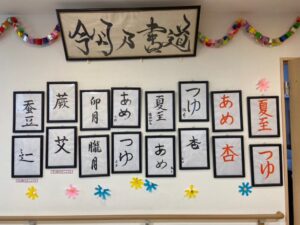 今月乃書道
蚕豆
蕨
卯月
あめ
夏至
つゆ
あめ
夏至
艾
朧月
つゆ
あめ
杏
杏
つゆ